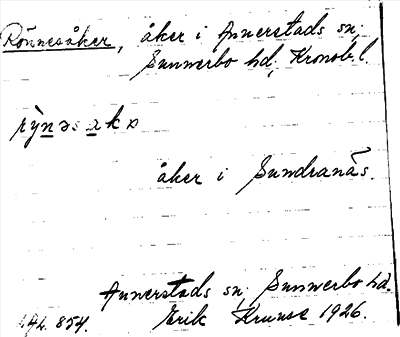 Rönnesåker, åker i Annerstads sn,
Sunnerbo hd, Kronob. l.
rỳnəsakə
åker i Sundranäs.
Annerstads sn, Sunnerbo hd.
Erik Kruuse 1926.